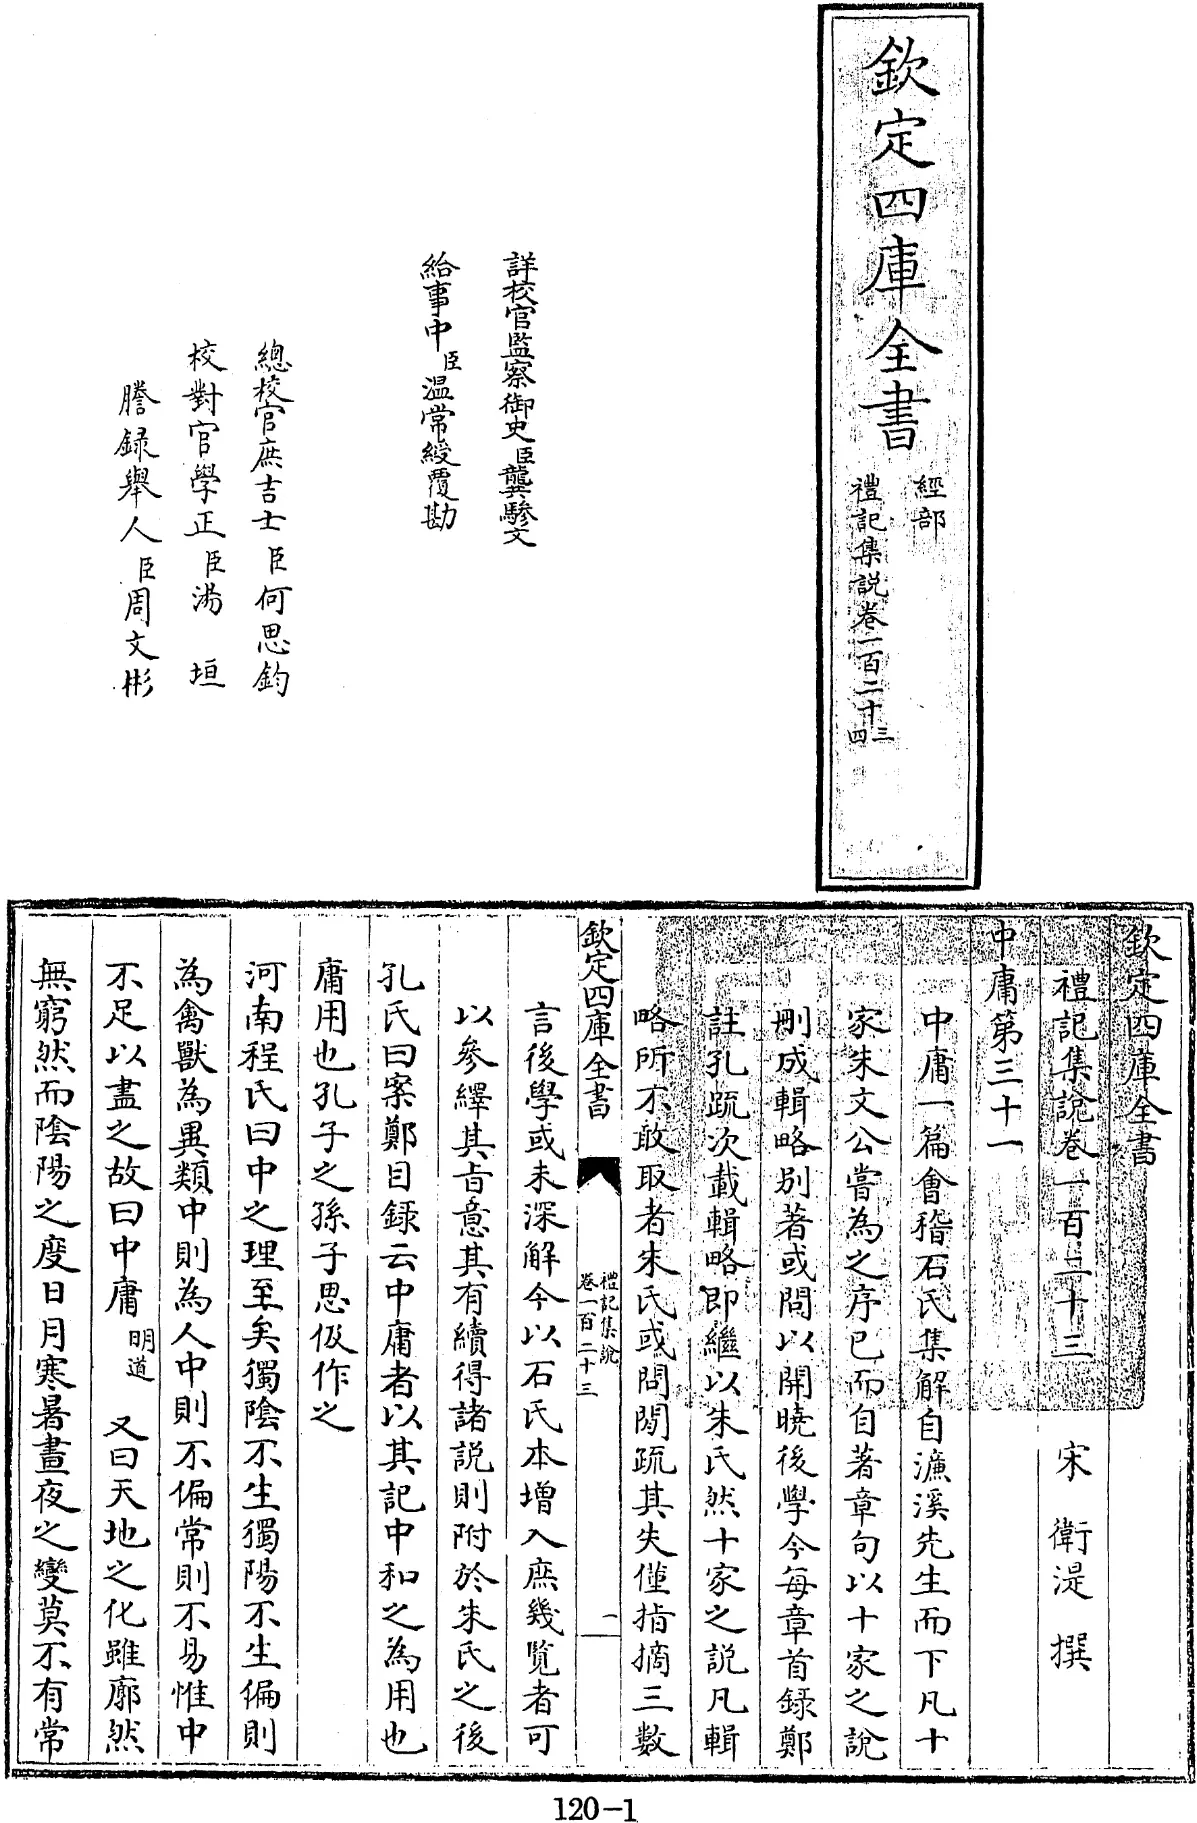 欽定四庫全書
經部
禮記集説卷一百二十三
四
詳校官監察御史臣龔驂文
給事中臣温常綬覆勘
總校官庶吉士臣何思鈞
校對官學正臣湯垣
謄録舉人臣周文彬
欽定四庫全書
禮記集說卷一百二十三
宋衛湜撰
中庸第三十一
中庸一篇會稽石氏集解自濂溪先生而下凡十
家朱文公嘗為之序已而自著章句以十家之說
刪成輯略別著或問以開曉後學今每章首録鄭
註孔疏次載輯略即繼以朱氏然十家之說凡輯
略所不敢取者朱氏或問閒疏其失僅指摘三數
欽定四庫全書
禮記集說
卷一百二十三
一
言後學或未深解今以石氏本增入庶幾覽者可
以參繹其旨意其有續得諸說則附於朱氏之後
孔氏曰案鄭目録云中庸者以其記中和之為用也
庸用也孔子之孫子思伋作之
河南程氏曰中之理至矣獨陰不生獨陽不生偏則
為禽獸為異類中則為人中則不偏常則不易惟中
不足以盡之故曰中庸明道 又曰天地之化雖廓然
無窮然而陰陽之度日月寒暑晝夜之變莫不有常
120-1